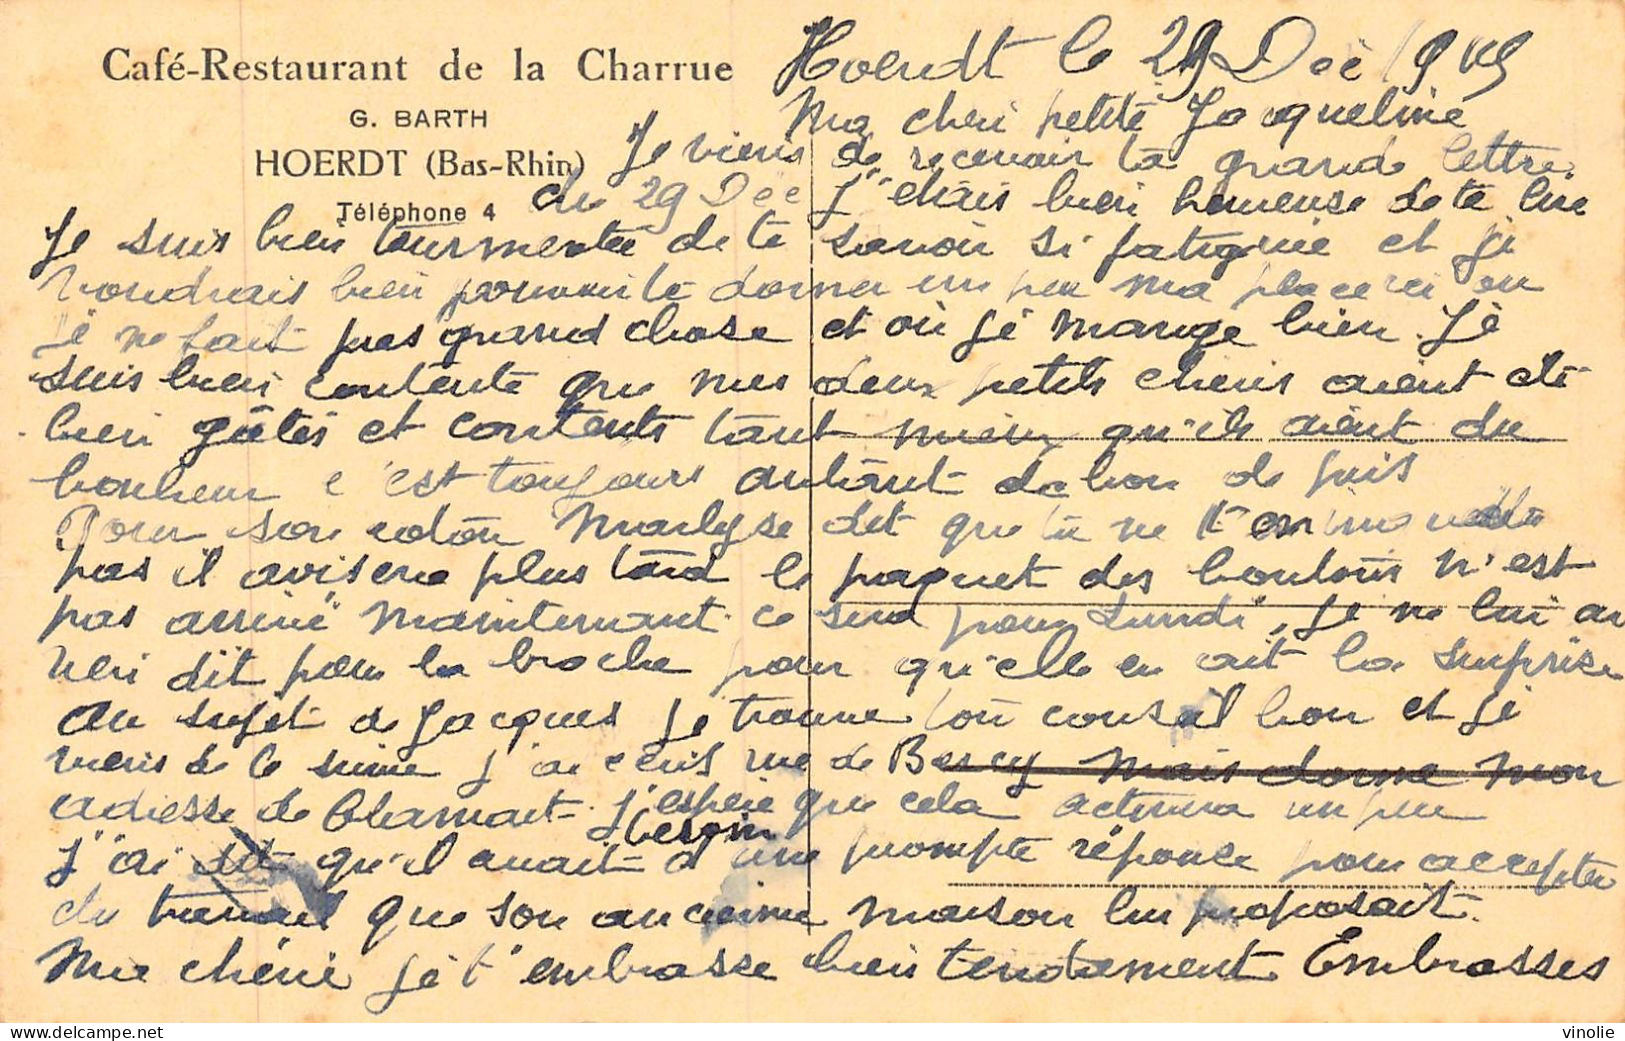 Café-Restaurant de la Charrue
G. BARTH
HOERDT (Bas-Rhin)
Téléphone 4
Hoerdt le 29 Dec 1945
Ma cheri petite Jacqueline
Je viens de recevoir ta grande lettre
du 29 Dec J'etais bien heureuse de te lire
Je suis bien tourmentée de te savoir si fatiguée et je
voudrais bien pouvoir te donner un peu ma place ici ou
je ne fait pas grand chose et où je mange bien. Je
suis bien contente que mes deux petits cheris aient été
bien gâtés et contents tant mieux qu'ils aient du
bonheur c'est toujours autant de bon de pris
Pour son Marlyse dit que tu ne t'en
pas il avisera plus tard le paquet des boutons n'est
pas arrivé maintenant ce sera pour Lundi, je ne lui a
rien dit pour la broche pour qu'elle en ait la surprise
Au sujet de Jacques je trouve ton conseil bon et je
viens de le suivre j'ai ecris rue de Bercy mais donne mon
adresse de Clamart. J'espère que cela activera un peu
J'ai dit qu'il avait besoin d'une prompte réponse pour accepter
du travail que son ancienne maison lui proposait.
Ma chérie je t'embrasse bien tendrement Embrasses
vinolie